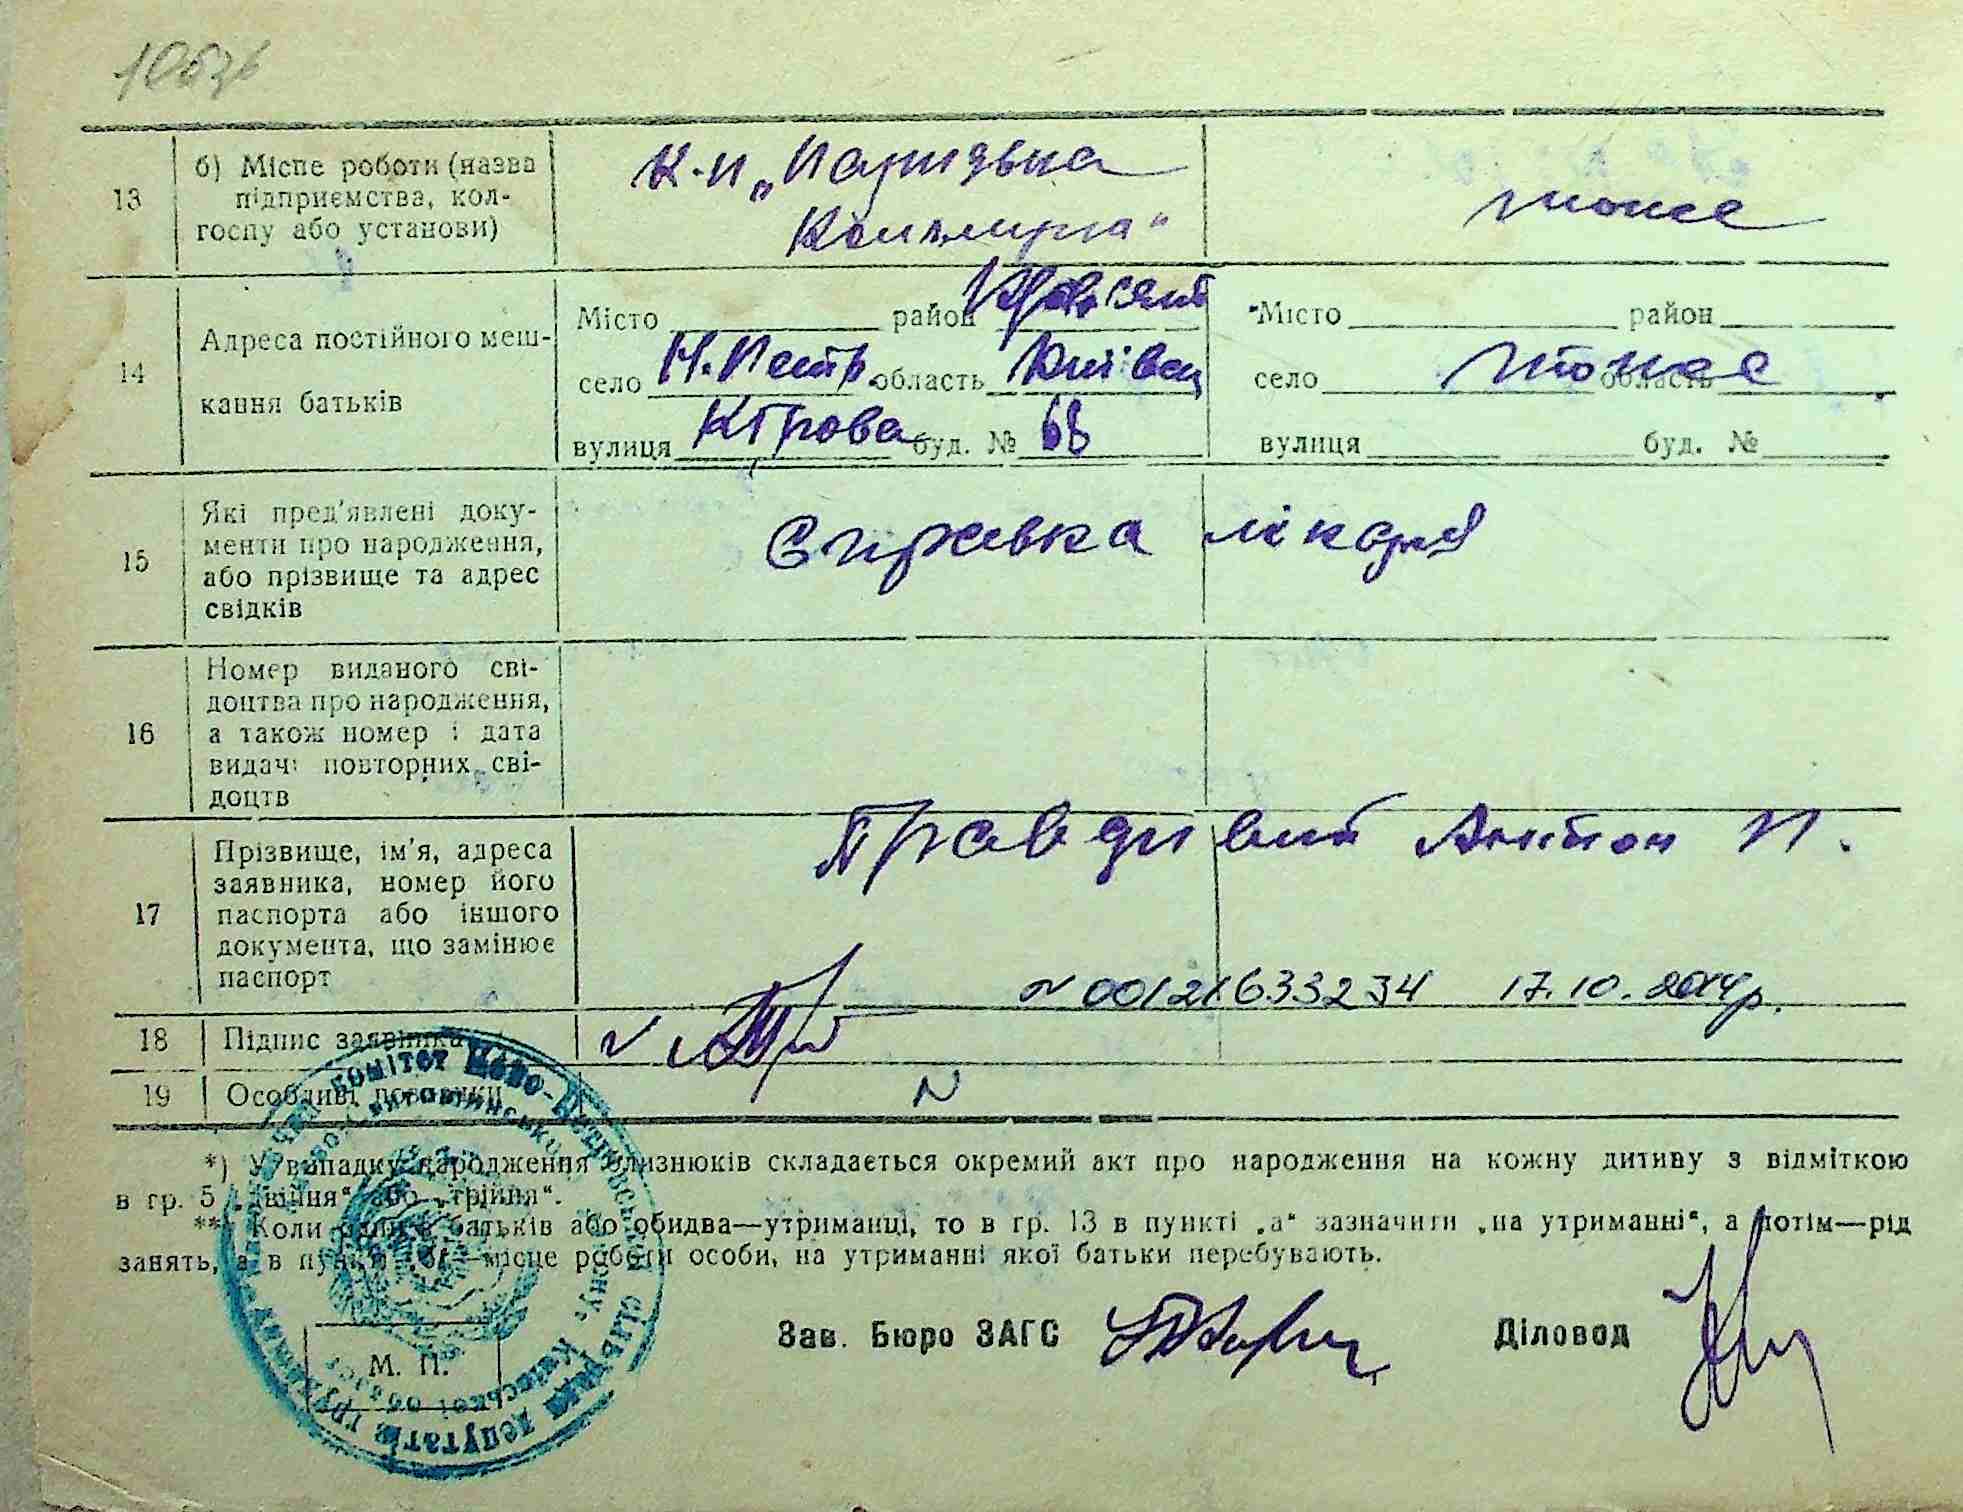 13
б) Місце роботи (назва
підприємства, кол-
госпу або установи)
К-п „Паризька
Коммуна“
тоже
14
Адреса постійного меш-
кання батьків
Місто район
село Н. Петр. область Київськ
вулиця Кірова буд. № 68
Місто район
село тоже область
вулиця буд. №
15
Які пред'явлені доку-
менти про народження,
або прізвище та адрес
свідків
Справка лікаря
16
Номер виданого сві-
доцтва про народження,
а також номер і дата
видачі повторних сві-
доцтв
17
Прізвище, ім'я, адреса
заявника, номер його
паспорта або іншого
документа, що замінює
паспорт
Правдивий Антон П.
№ 00121633234 17.10.2014р.
18 Підпис заявника
19 Особливі позначки
*) У випадку народження близнюків складається окремий акт про народження на кожну дитину з відміткою
в гр. 5 „двійня“ або „трійня“.
** Коли один з батьків або обидва—утриманці, то в гр. 13 в пункті „а“ зазначити „на утриманні“, а потім—рід
занять, а в пункті „б“—місце роботи особи, на утриманні якої батьки перебувають.
Зав. Бюро ЗАГС
Діловод
М. П.
комітет Ново-Петрівської сільради депутатів трудящих
Київської області